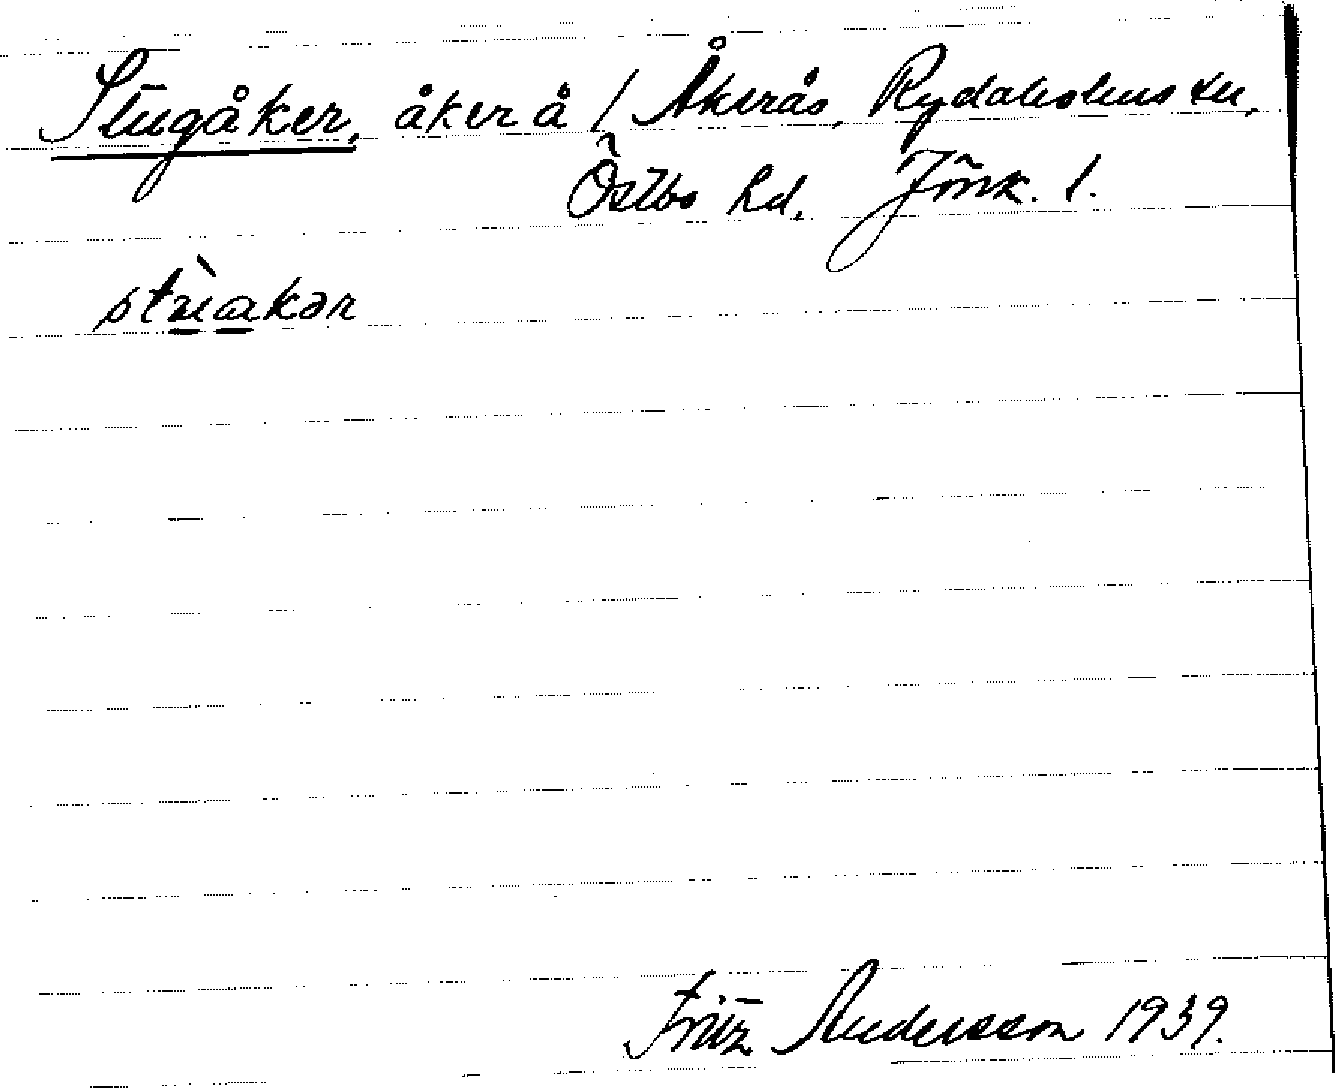 Stugåker, åker å / Åkerås, Rydaholms sn,
Östbo hd. Jönk. l.
Fritz Andersson 1939.